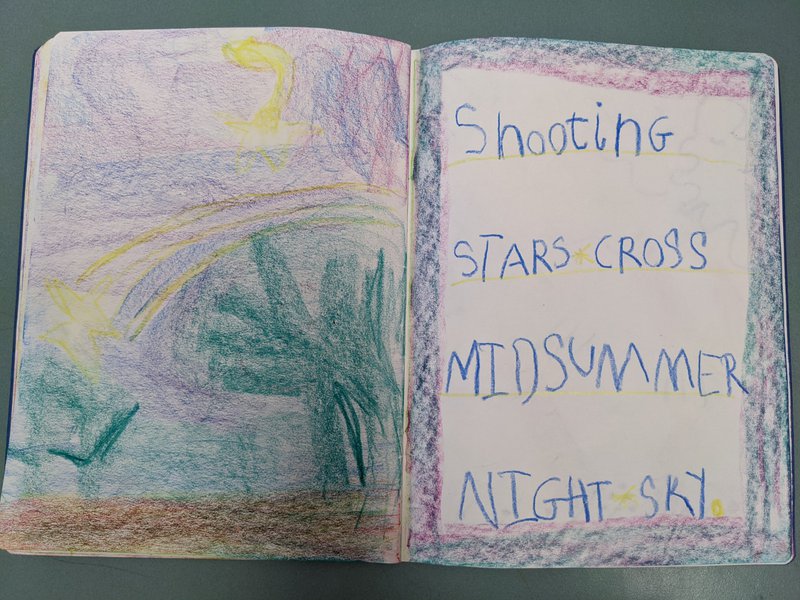 Shooting
STARS CROSS
MIDSUMMER
NIGHT SKY.